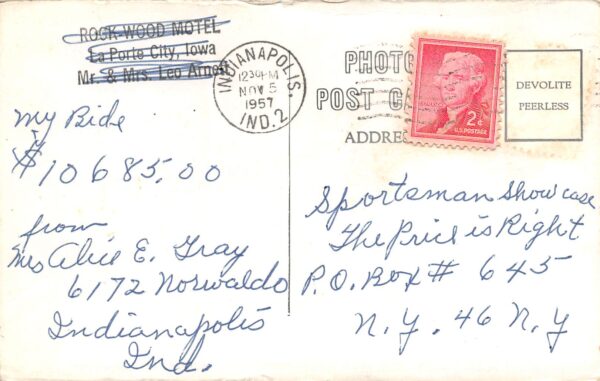 ROCK-WOOD MOTEL
La Porte City, Iowa
Mr. & Mrs. Leo Arnett
INDIANAPOLIS,
12 30 PM
NOV 5
1957
IND. 2
PHOTO
POST CA
ADDRE
2¢
U.S. POSTAGE
DEVOLITE
PEERLESS
My Bide
$10685.00
from
Mrs Alice E. Gray
6172 Norwaldo
Indianapolis
Ind.
Sportsman Showcase
The Price is Right
P.O. Box # 645
N.Y. 46 N.Y